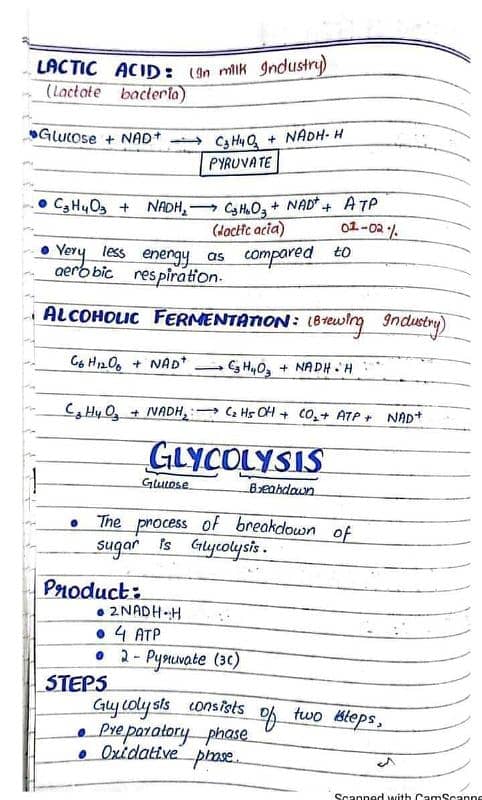 LACTIC ACID: (In milk Industry)
(Lactate bacteria)
Glucose + NAD⁺ → C₃H₄O₃ + NADH·H
PYRUVATE
C₃H₄O₃ + NADH₂ → C₃H₆O₃ + NAD⁺ + ATP
(lactic acid) 01-02 %
Very less energy as compared to
aerobic respiration.
ALCOHOLIC FERMENTATION: (Brewing Industry)
C₆H₁₂O₆ + NAD⁺ → C₃H₄O₃ + NADH·H
C₃H₄O₃ + NADH₂ → C₂H₅OH + CO₂ + ATP + NAD⁺
GLYCOLYSIS
Glucose Breakdown
The process of breakdown of
sugar is Glycolysis.
Product:
2NADH·H
4 ATP
2- Pyruvate (3C)
STEPS
Glycolysis consists of two steps,
Preparatory phase
Oxidative phase.
Scanned with CamScanne